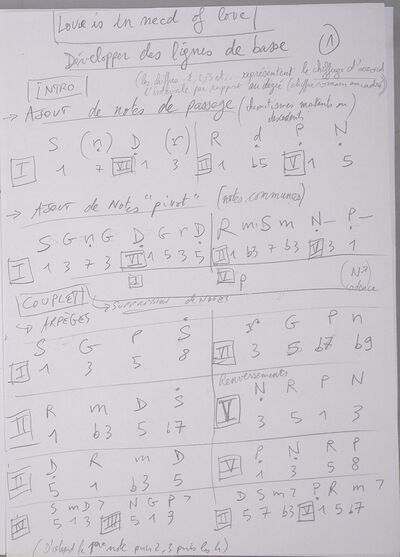 Love is in need of love
Développer des lignes de basse ①
INTRO (les chiffres 1, b3 etc. représentent le chiffrage d'accord
l'intervalle par rapport au degré (chiffre romain encadré)
→ AJOUT de notes de passage (chromatismes montants ou descendants
S (n) D (r) R d P N
I 1 7 VI 1 3 II 1 b5 V 1 5
→ AJOUT de Notes "pivot" (notes communes)
S G n G D G r D R m S m N— P—
I 1 3 7 3 VI 1 5 3 5 II 1 b3 7 b3 V 3 1
I V p
COUPLET → suppression de notes cadence
→ ARPÈGES
S G P S r G P n
I 1 3 5 8 VI 3 5 b7 b9
Renversements
R m D S N R P N
II 1 b3 5 b7 V 3 5 1 3
D R m D P N R P
II 5 1 b3 5 V 1 3 5 8
S m D > N G P > D S m > P R m >
IV 5 1 3 III 5 1 3 II 5 7 b3 V 1 5 b7